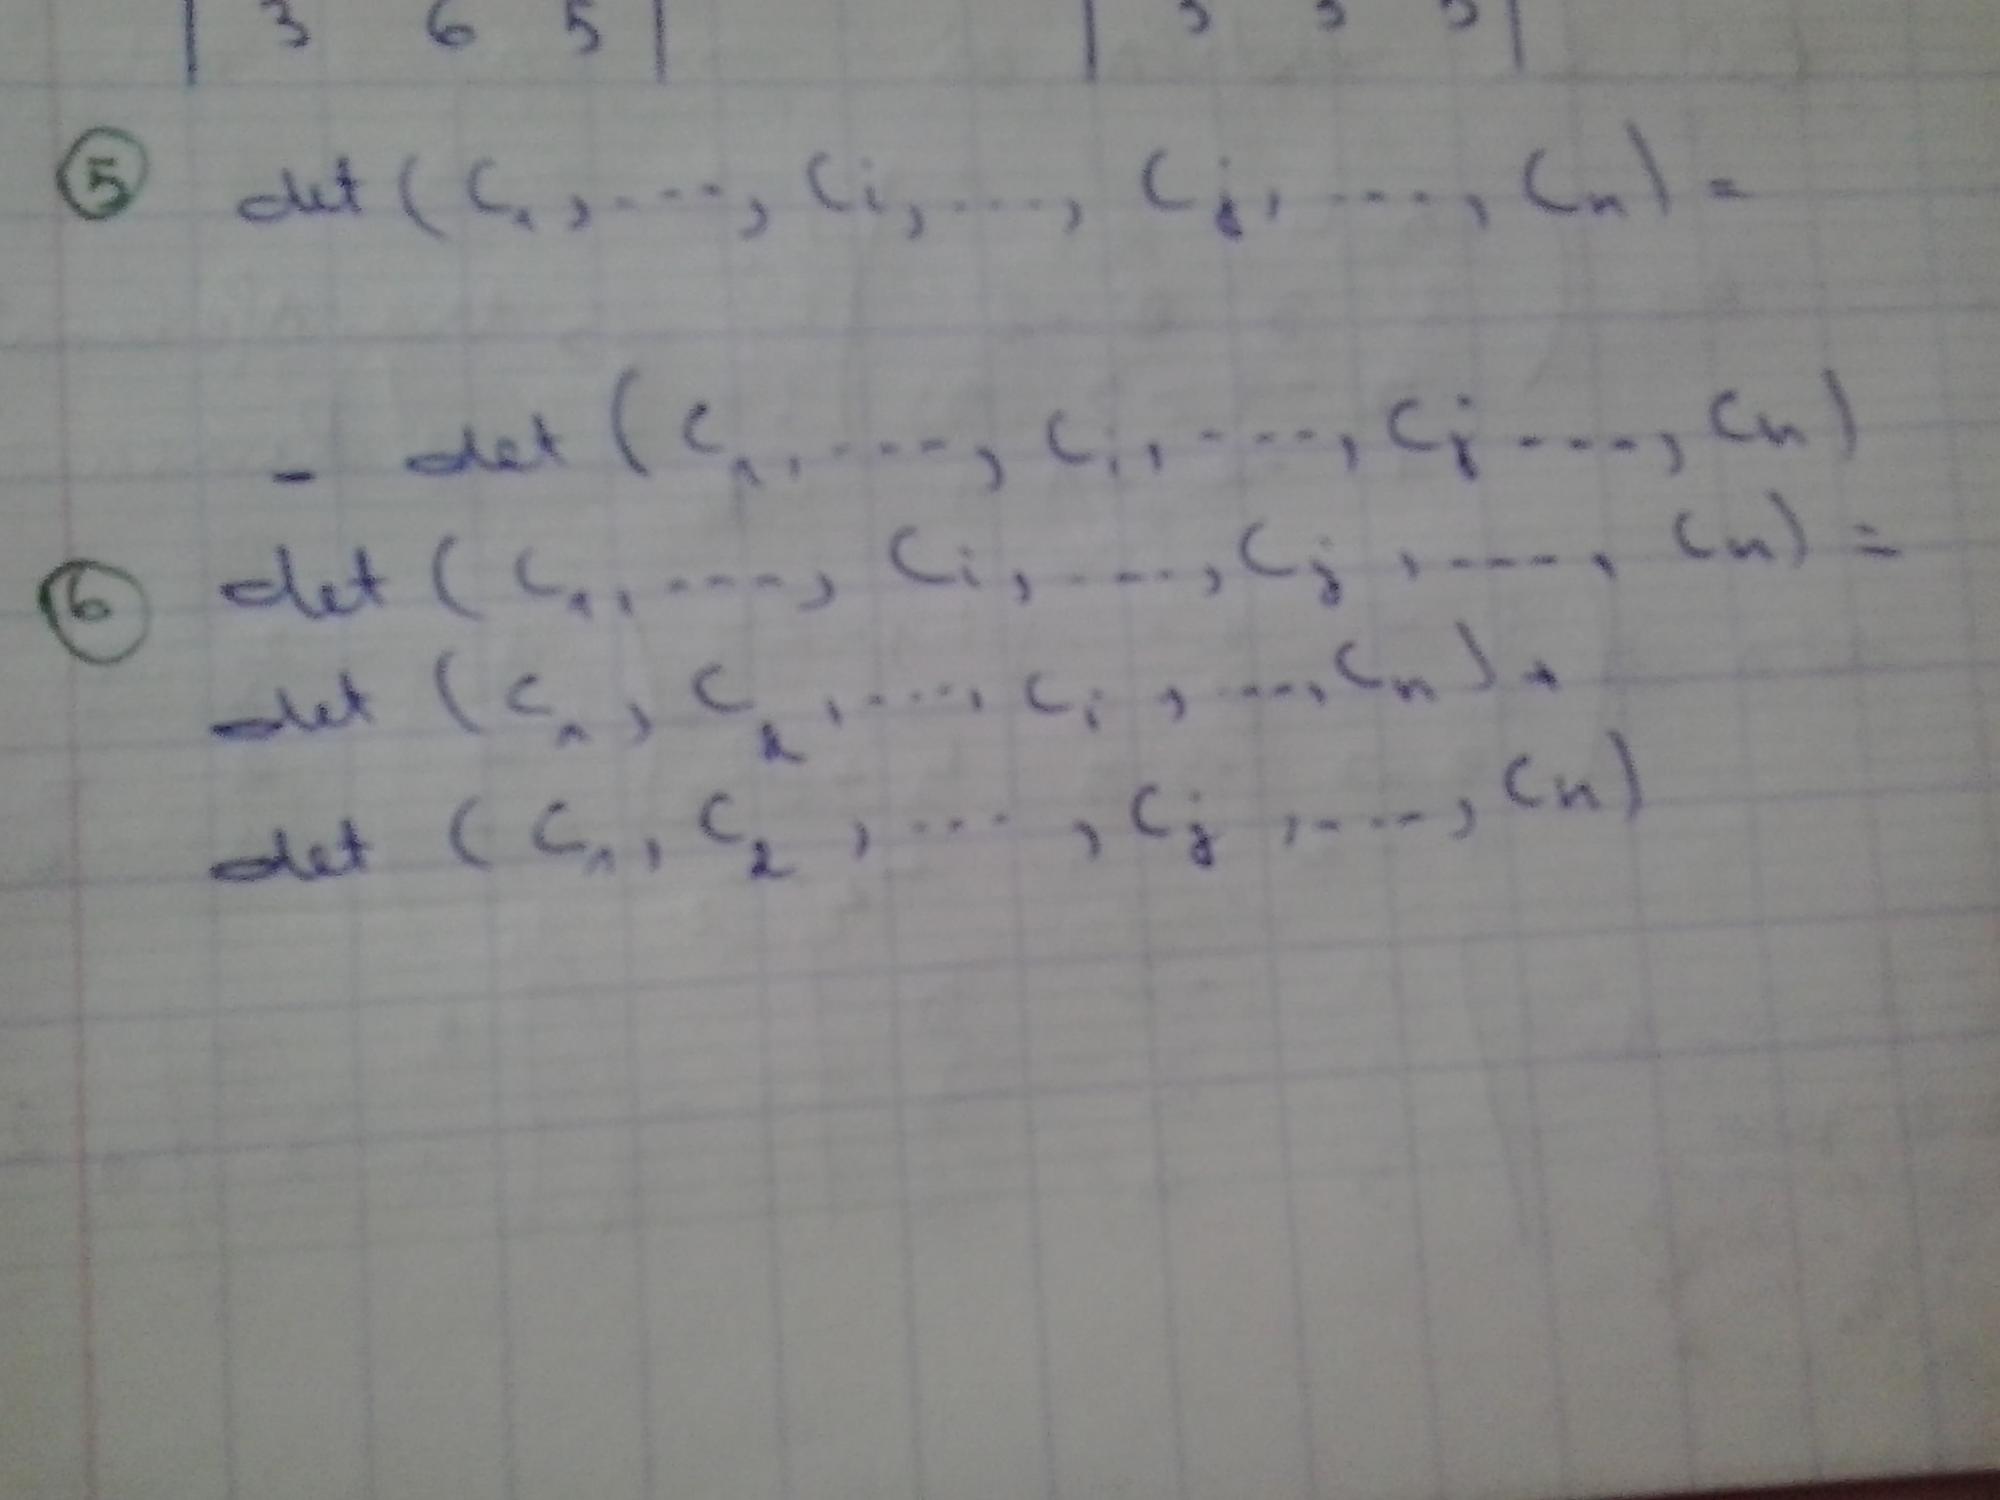 | 3 6 5 |
⑤ det ( C₁, ...., Ci, ...., Cj, ...., Cn) =
- det ( C₁, ...., Ci, ...., Cj ...., Cn)
⑥ det ( C₁, ...., Ci, ...., Cj, ...., Cn) =
det ( C₁, C₂, ...., Ci, ...., Cn) +
det ( C₁, C₂, ...., Cj, ...., Cn)